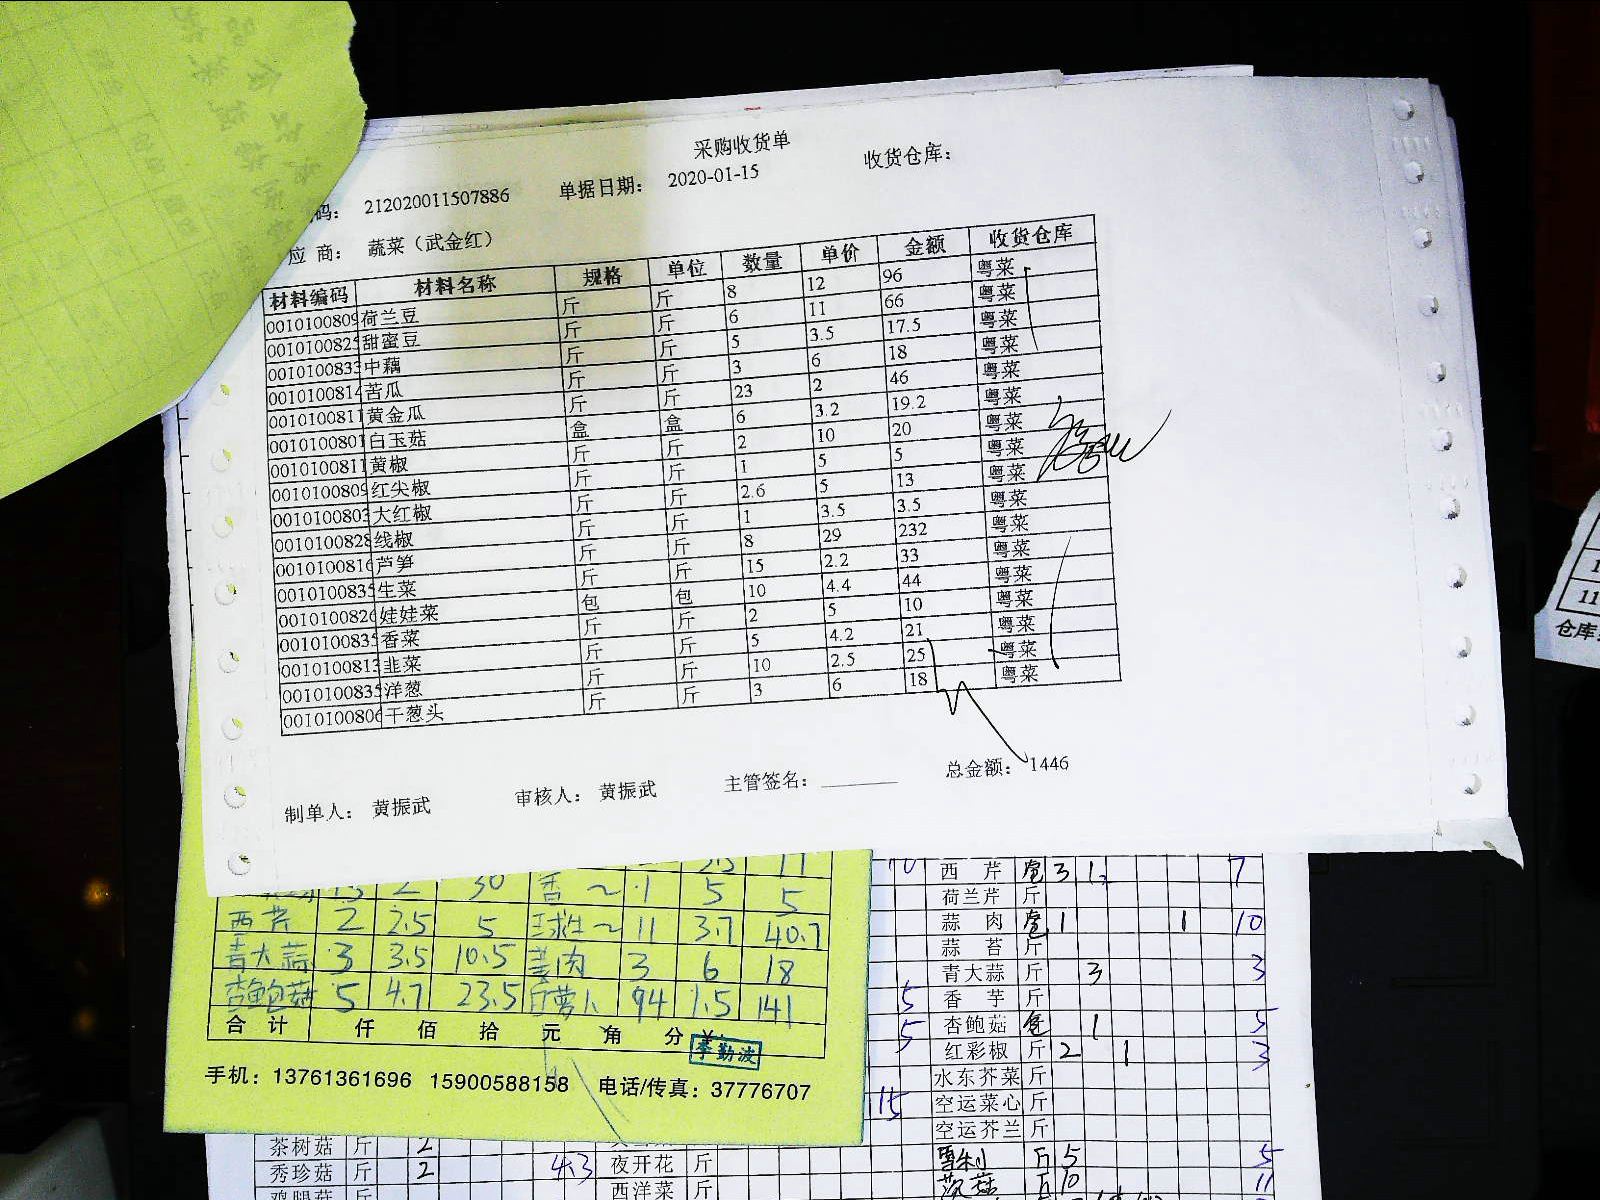 采购收货单
码： 212020011507886 单据日期： 2020-01-15 收货仓库：
应 商： 蔬菜（武金红）
材料编码 材料名称 规格 单位 数量 单价 金额 收货仓库
0010100809 荷兰豆 斤 斤 8 12 96 粤菜
0010100825 甜蜜豆 斤 斤 6 11 66 粤菜
0010100833 中藕 斤 斤 5 3.5 17.5 粤菜
0010100814 苦瓜 斤 斤 3 6 18 粤菜
0010100811 黄金瓜 斤 斤 23 2 46 粤菜
0010100801 白玉菇 盒 盒 6 3.2 19.2 粤菜
0010100811 黄椒 斤 斤 2 10 20 粤菜
0010100809 红尖椒 斤 斤 1 5 5 粤菜
0010100803 大红椒 斤 斤 2.6 5 13 粤菜
0010100828 线椒 斤 斤 1 3.5 3.5 粤菜
0010100816 芦笋 斤 斤 8 29 232 粤菜
0010100835 生菜 斤 斤 15 2.2 33 粤菜
0010100826 娃娃菜 包 包 10 4.4 44 粤菜
0010100835 香菜 斤 斤 2 5 10 粤菜
0010100813 韭菜 斤 斤 5 4.2 21 粤菜
0010100835 洋葱 斤 斤 10 2.5 25 粤菜
0010100806 干葱头 斤 斤 3 6 18 粤菜
制单人： 黄振武 审核人： 黄振武 主管签名： 总金额： 1446
30 香～ 1 5 5
西芹 2 2.5 5 球生～ 11 3.7 40.7
青大蒜 3 3.5 10.5 姜肉 3 6 18
杏鲍菇 5 4.7 23.5 斤萝卜 94 1.5 141
合 计 仟 佰 拾 元 角 分
李勤波
手机：13761361696 15900588158 电话/传真：37776707
西 芹 3 1 7
荷兰芹 斤
蒜 肉 1 1 10
蒜 苔 斤
青大蒜 斤 3 3
5 香 芋 斤
5 杏鲍菇 1 5
红彩椒 斤 2 1 3
水东芥菜 斤
15 空运菜心 斤
空运芥兰 斤
茶树菇 斤 2
秀珍菇 斤 2 4.3 夜开花 斤
斤 5 5
鸡腿菇 斤 西洋菜 斤
斤 10 11
1
11
仓库：